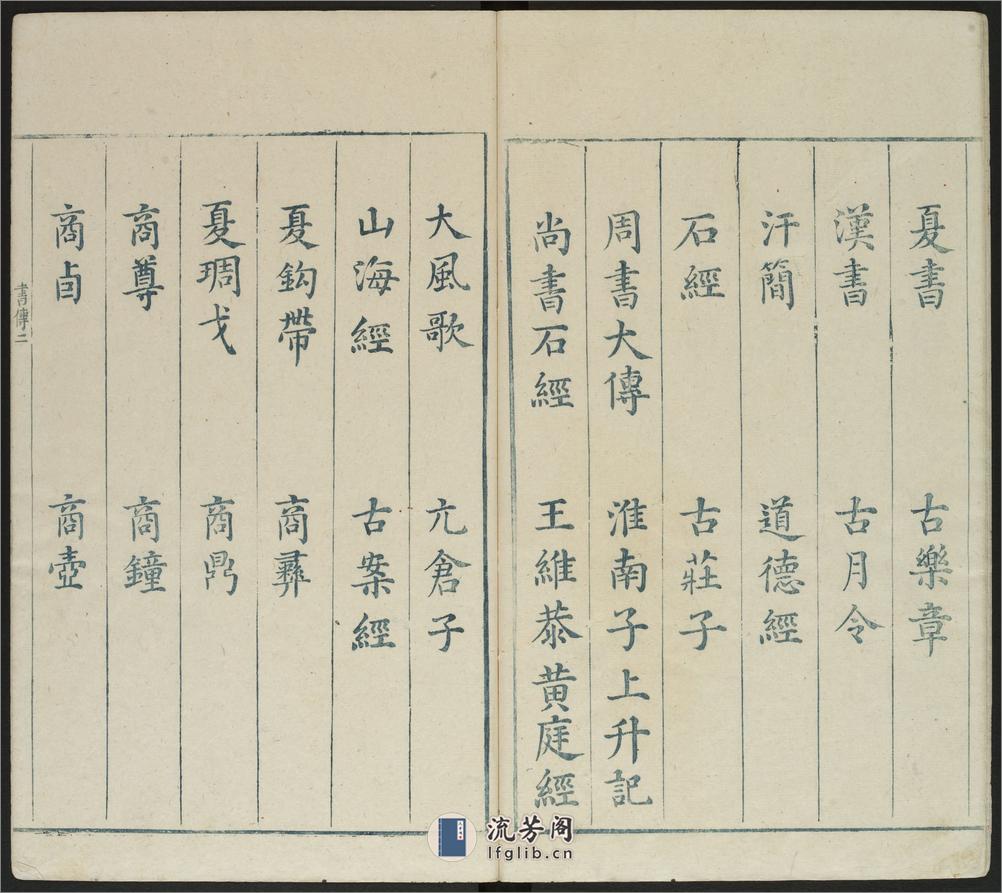 夏書 古樂章
漢書 古月令
汗簡 道德經
石經 古莊子
周書大傳 淮南子上升記
尚書石經 王維恭黄庭經
大風歌 亢倉子
山海經 古案經
夏鈎帶 商彞
夏琱戈 商鼎
商尊 商鐘
商卣 商壺
書傳二
流芳阁
lfglib.cn